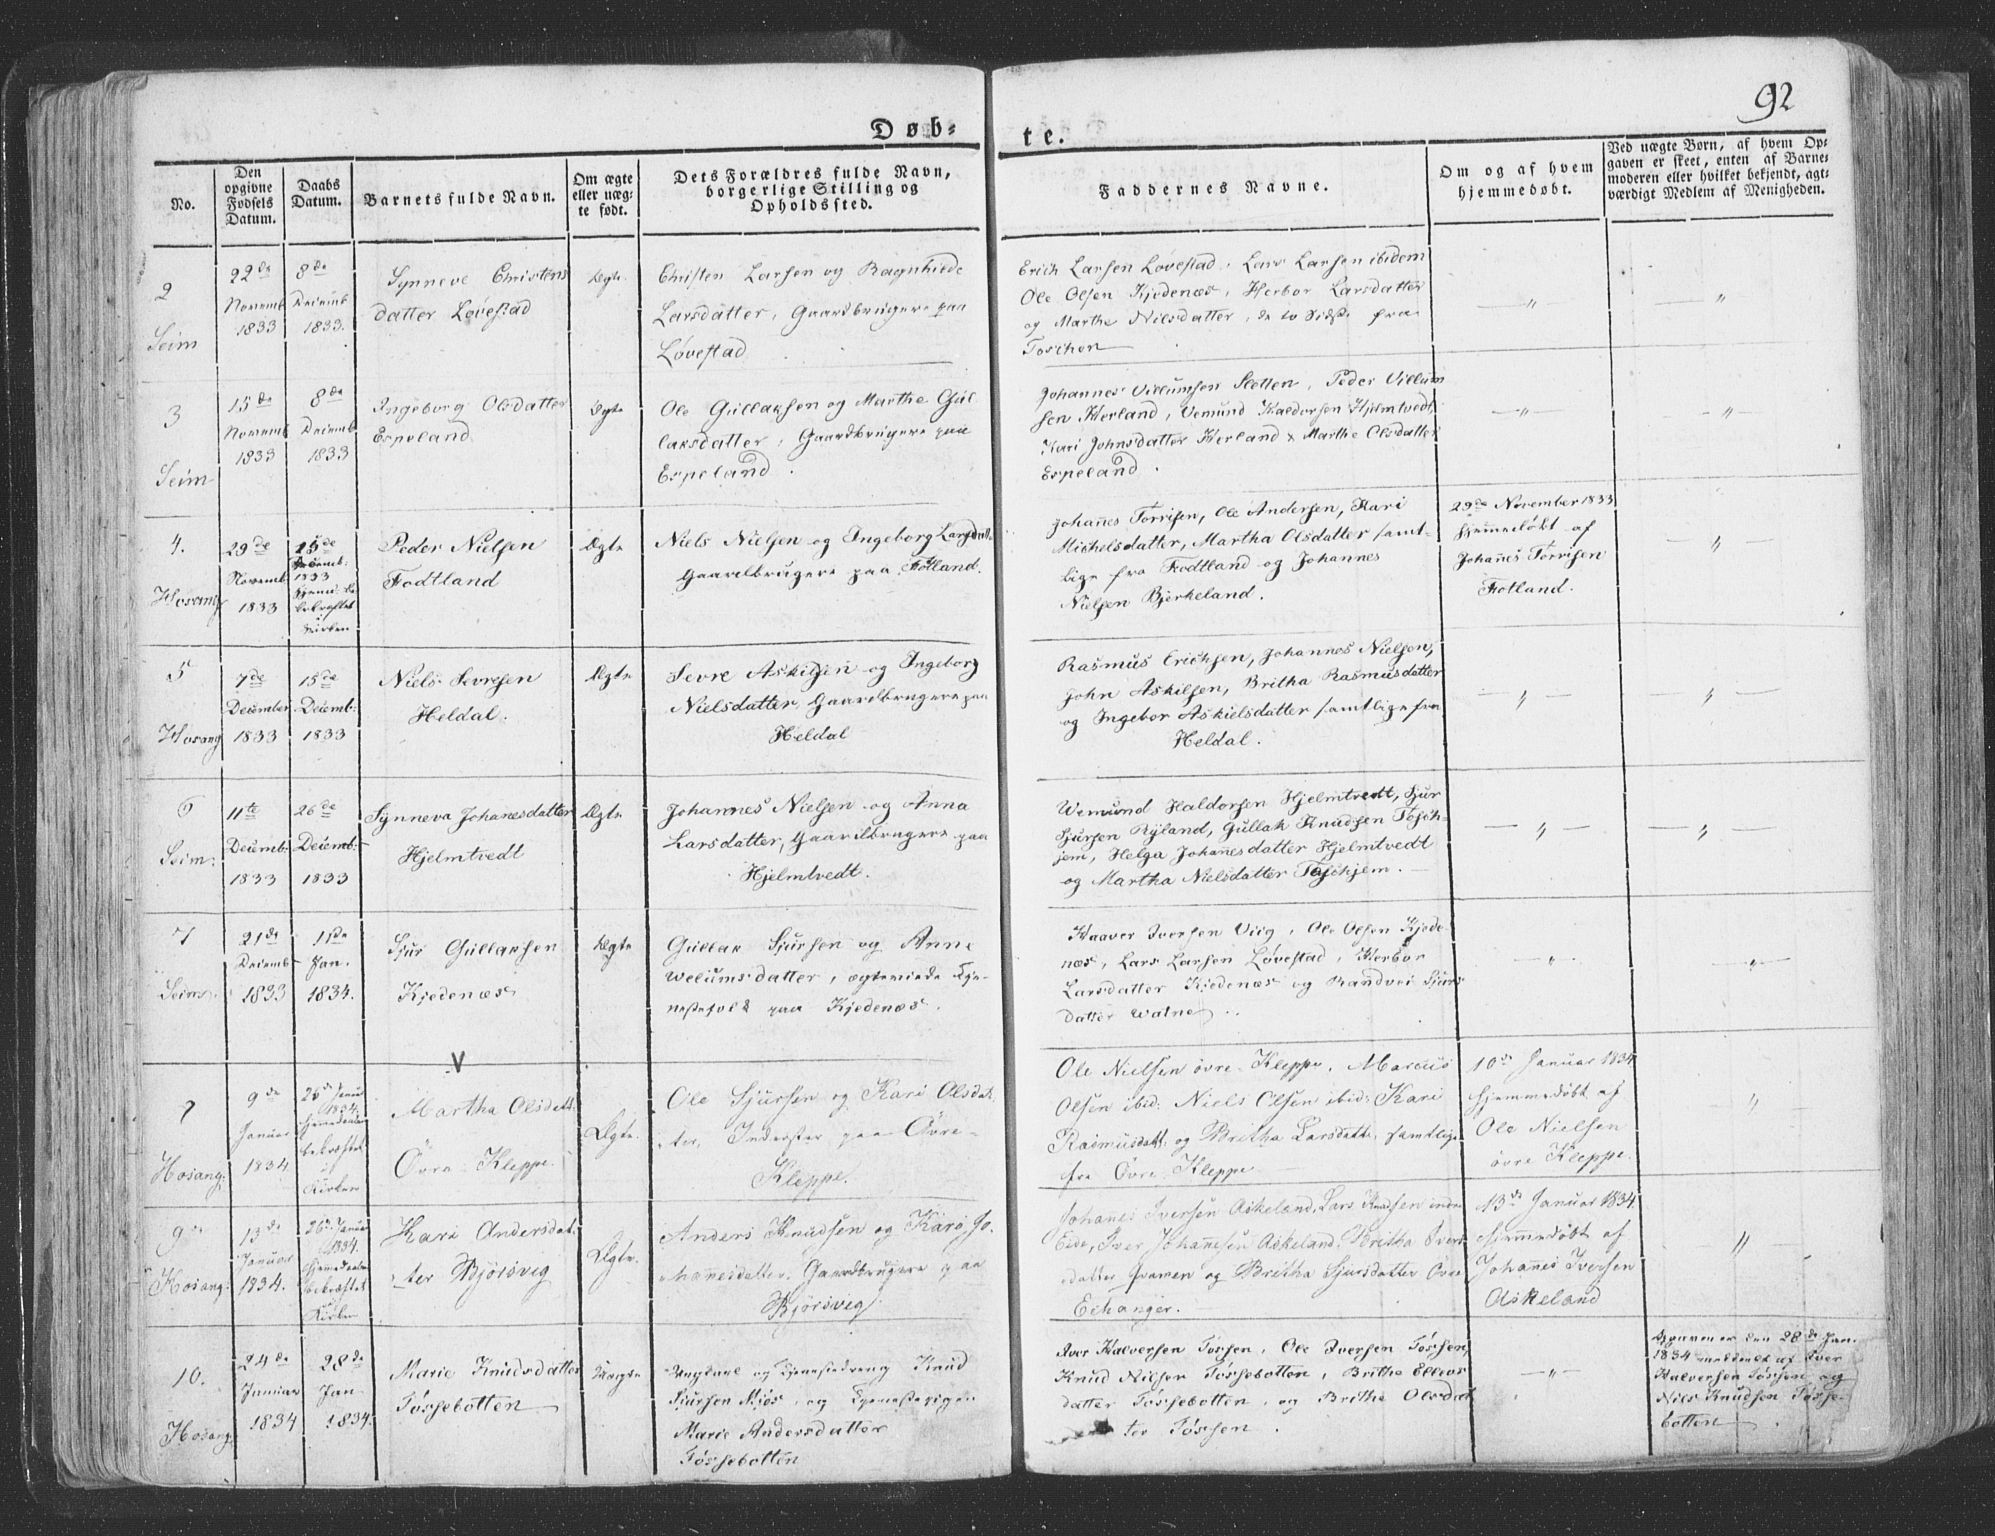 92
Døb-
te.
No.
Den
opgivne
Fødsels
Datum.
Daabs
Datum.
Barnets fulde Navn.
Om ægte
eller uæg-
te født.
Dets Forældres fulde Navn,
borgerlige Stilling og
Opholdssted.
Faddernes Navne.
Om og af hvem
hjemmedøbt.
Ved uægte Børn, af hvem Op-
gaven er skeet, enten af Barne-
moderen eller hvilket bekjendt, agt-
værdigt Medlem af Menigheden.
2
Seim
22de
Novemb
1833
8de
Decemb
1833.
Synneve Christens
datter Løvestad
Ægte.
Christen Larsen og Ragnhilde
Larsdatter, Gaardbrugere paa
Løvestad
Erich Larsen Løvestad, Lars Larsen ibidem
Ole Olsen Kjedenæs, Herbor Larsdatter
og Marthe Nilsdatter, de to sidste fra
—„—
—„—
3
Seim
15de
Novemb
1833
8de
Decemb
1833
Ingeborg Olsdatter
Espeland
Ægte
Ole Gullaksen og Marthe Gul
laksdatter, Gaardbrugere paa
Espeland.
Johannes Villumsen Sletten, Peder Villum
sen Herland, Vemund Haldorsen Hjelmtvedt,
Kari Johnsdatter Herland & Marthe Olsdatter
Espeland.
—„—
—„—
4.
Hosang
29de
Novemb
1833
15de
Decemb:
1833
bekræftet
i
Kirken
Peder Nielsen
Fodtland
Ægte
Niels Nielsen og Ingeborg Larsdatt
Gaardbrugere paa Fotland.
Johañes Torrisen, Ole Andersen, Kari
Michelsdatter, Martha Olsdatter samt-
lige fra Fodtland og Johannes
Nielsen Bjerkeland.
29de November 1833
hjemmedøbt af
Johañes Torrisen
Fotland.
—„—
5
Hosang
7de
December
1833
15de
Decemb:
1833
Niels Sevresen
Heldal.
Ægte
Sevre Askilsen og Ingeborg
Nielsdatter, Gaardbrugere paa
Heldal
Rasmus Erichsen, Johannes Nielsen,
John Askilsen, Britha Rasmusdatter
og Ingebor Askielsdatter samtlige fra
Heldal.
—„—
—„—
6
Seim:
11te
Decemb:
1833
26de
Decemb:
1833
Synneva Johanesdatter
Hjelmtvedt
Ægte
Johannes Nielsen og Anna
Larsdatter, Gaardbrugere paa
Hjelmtvedt.
Wemund Haldorsen Hjelmtvedt, Sjur
Sjursen Ryland, Gullak Knudsen Tosch-
jem, Helga Johañesdatter Hjelmtvedt
og Martha Nielsdatter Toschjem.
—„—
—„—
7
Seim.
21de
Decemb
1833
1ste
Jan.
1834.
Sjur Gullaksen
Kjedenæs
Ægte
Gullak Sjursen og Anne
Weliums datter, ægteviede Tje-
nestefolk paa Kjedenæs.
Haaver Iversen Viig, Ole Olsen Kjede-
næs, Lars Larsen Løvestad, Herbor
Larsdatter Kjedenæs og Randvei Sjurs
datter Watne.
—„—
—„—
Hosang:
9de
Januar
1834
26de Januar
1834.
bekræftet
i
Kirken
V
Martha Olsdatt:
Øvre Kleppe.
Ægte.
Ole Sjursen og Kari Olsdat
ter, Inderster paa Øvre-
Kleppe.
Ole Nielsen øvre Kleppe, Marcus
Olsen ibid: Niels Olsen ibid: Kari
Rasmusdatt: og Britha Larsdatt: samtlige
fra Øvre Kleppe
10de Januar 1834
hjemmedøbt af
Ole Nielsen
øvre Kleppe.
„
9de
Hosang:
13de
Januar
1834.
26de Januar
1834.
bekræftet
Kirken
Kari Andersdat
ter Bjørsvig
Ægte.
Anders Knudsen og Kari Jo.
hannesdatter. Gaardbrugere paa
Bjørsvig
Johanes Iversen Askeland, Lars Knudsen
Eide, Iver Johannesen Askeland, Britha Ivers
datter Framen og Britha Sjursdatter Øvre
Eichanger.
13de Januar 1834.
hjemmedøbt af
Johanes Iversen
Askeland
„
10.
Hosang
24de
Januar
1834
28de
Jan
1834.
Marie Knudsdatter
Fossebotten
Uægte
Ungkarl og Tjenestedreng Knud
Sjursen Mjøs, og Tjenestepigen
Marie Andersdatter
Fossebotten
Iver Halversen Fossen, Ole Iversen Fossen,
Knud Nilsen Fossebotten, Brithe Ellevs
datter Fossebotten, og Brithe Olsdat
ter Fossen.
—„—
Opgaven er den 28de Jan.
1834 meddelt af Iver
Halversen Fossen og
Nils Knudsen Fosse-
botten